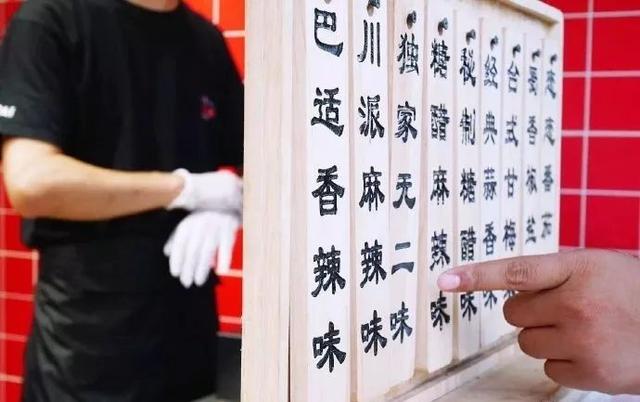 巴适香辣味
川派麻辣味
独家无二味
糖醋麻辣味
秘制糖醋味
经典蒜香味
台式甘梅
香椒盐
恋恋番茄